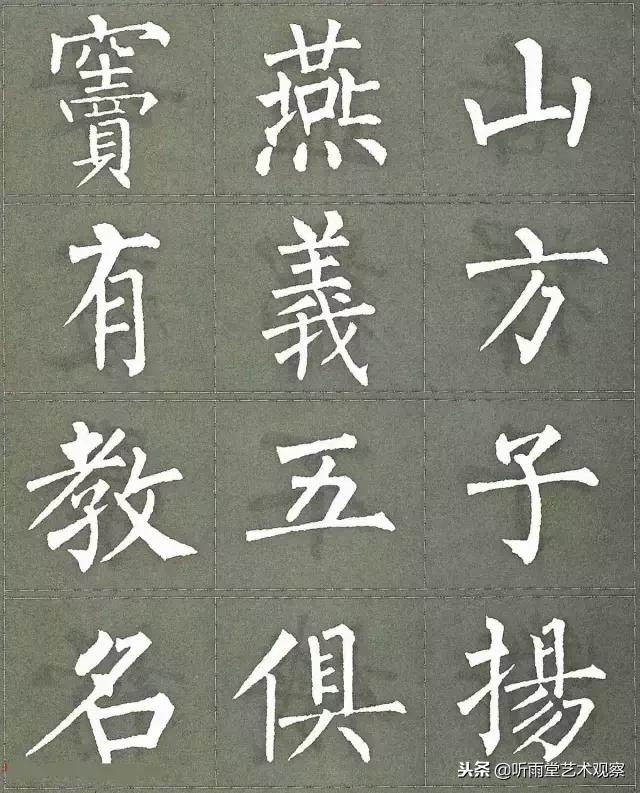 竇燕山
有義方
教五子
名俱揚
头条 @听雨堂艺术观察